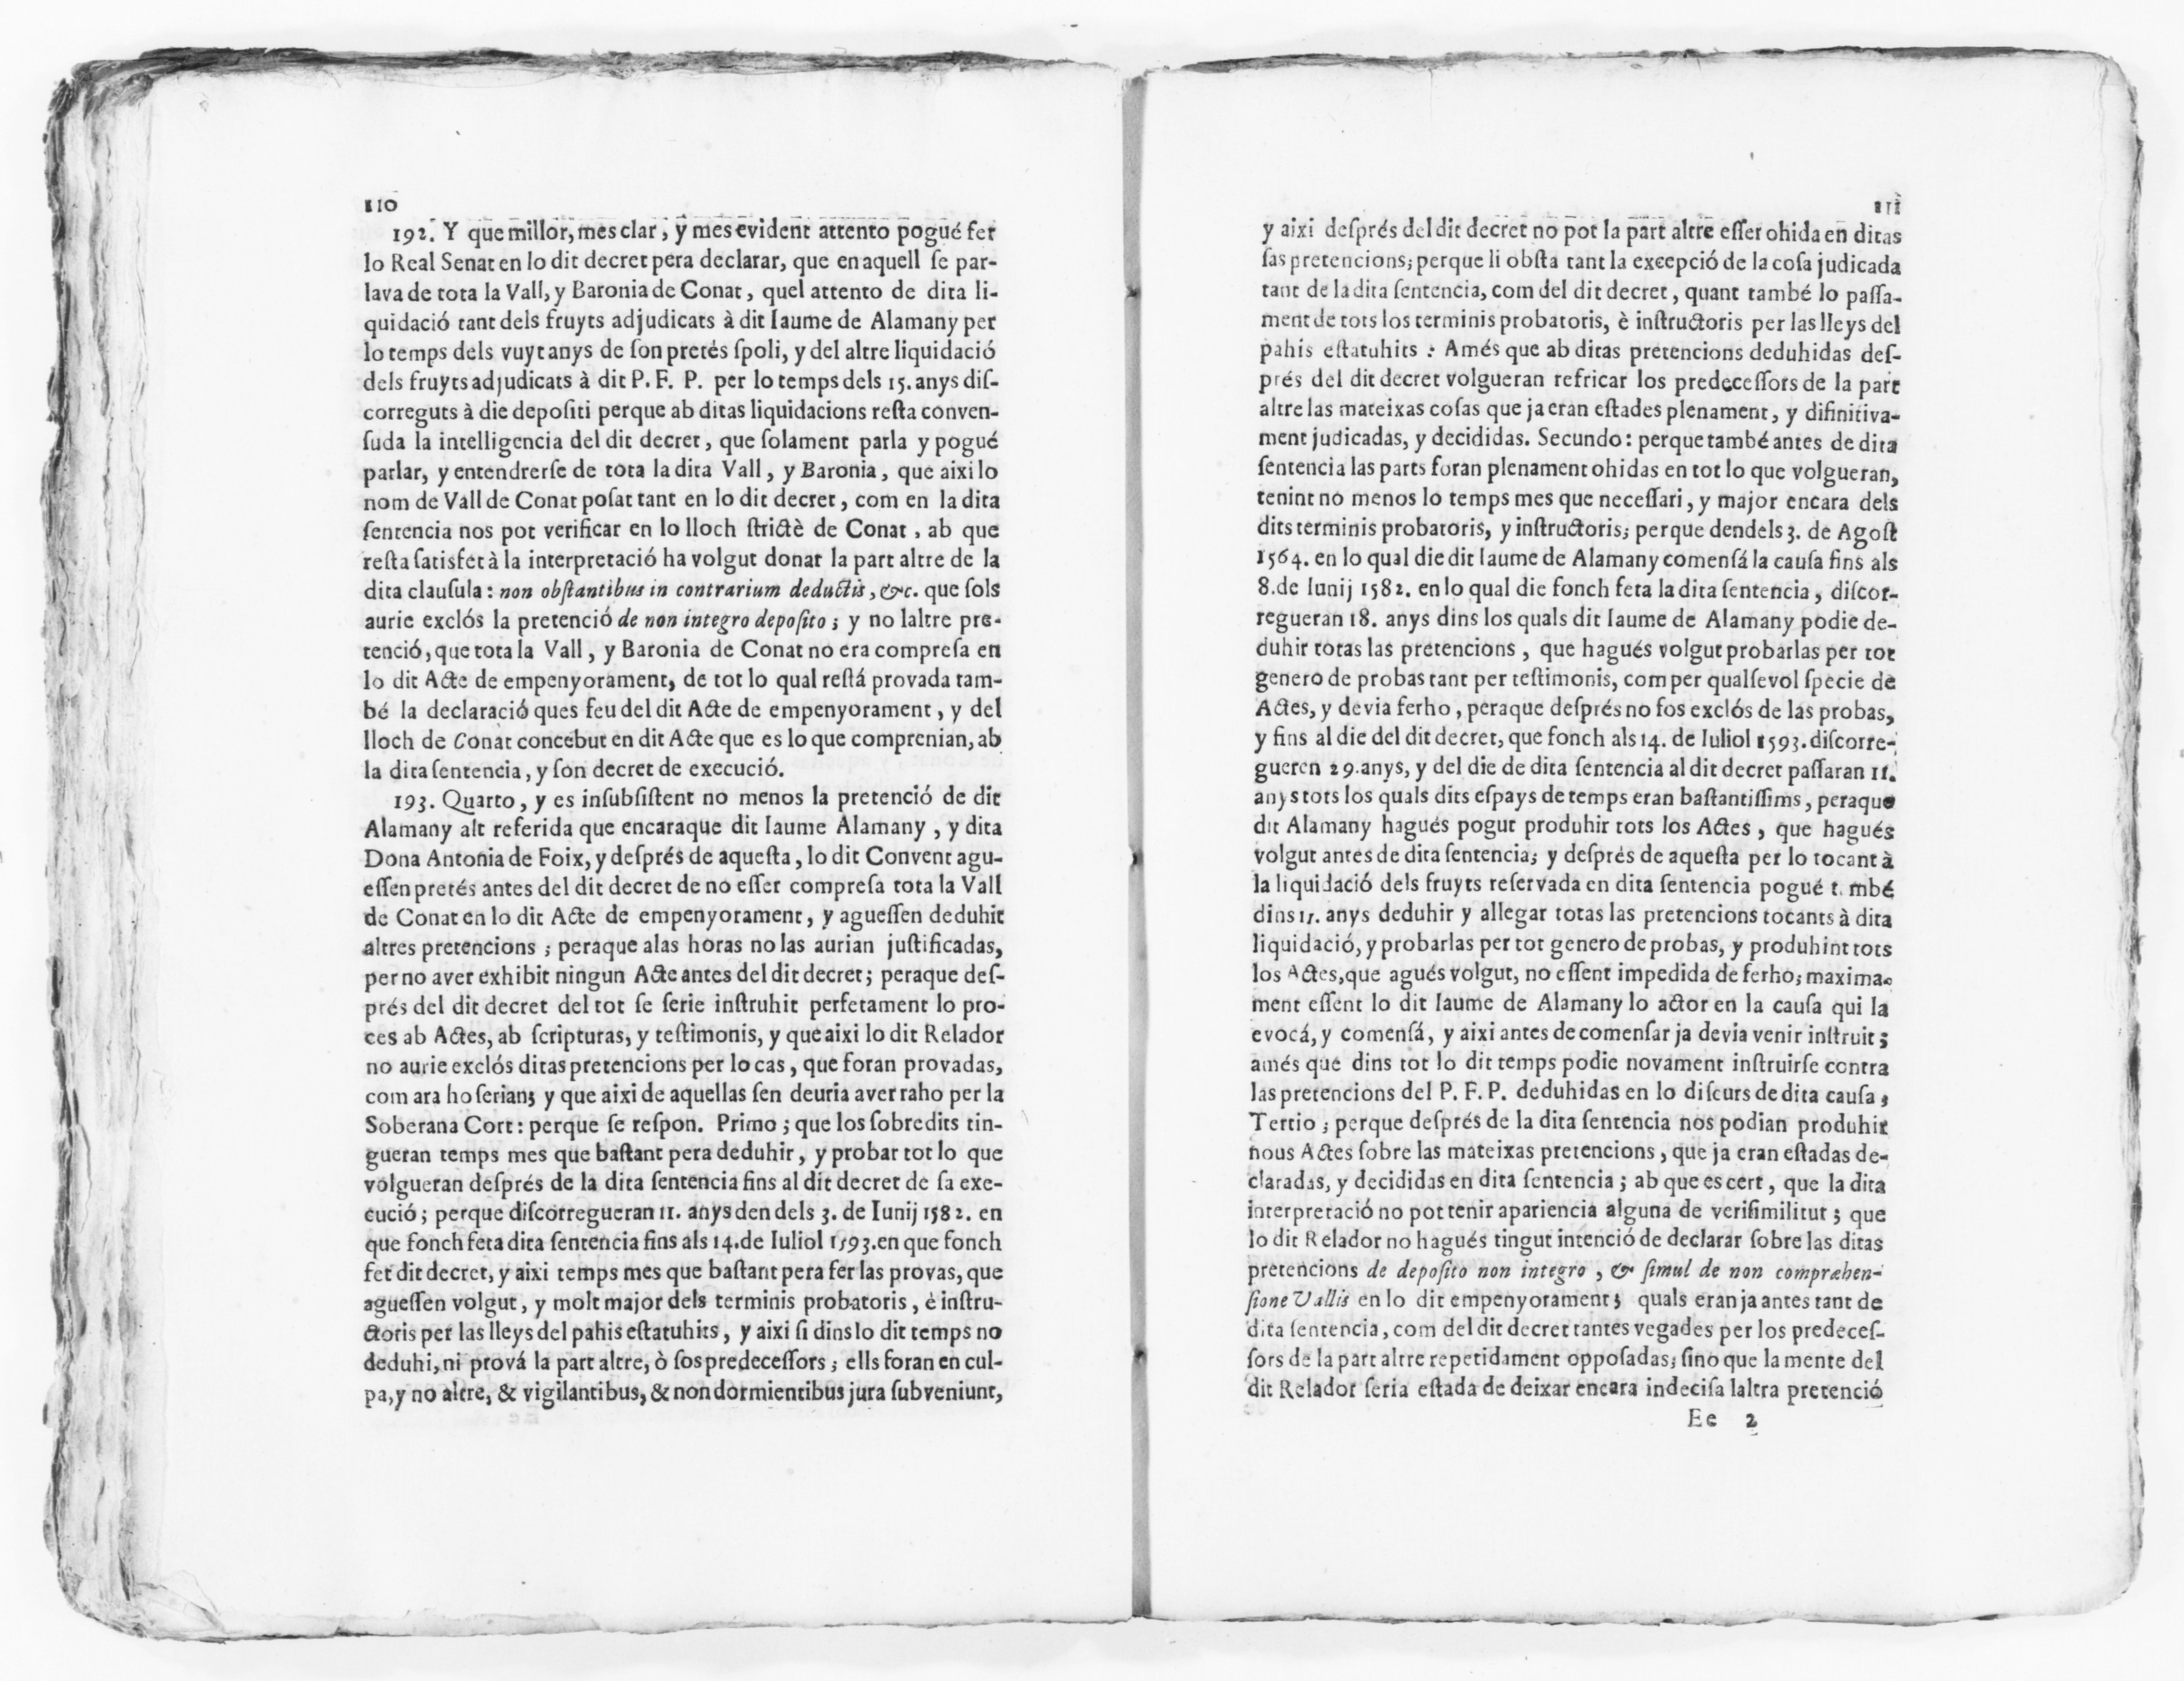 110
192. Y que millor, mes clar, y mes evident attento pogué fer
lo Real Senat en lo dit decret pera declarar, que en aquell ſe par-
lava de tota la Vall, y Baronia de Conat, quel attento de dita li-
quidació tant dels fruyts adjudicats à dit Iaume de Alamany per
lo temps dels vuyt anys de ſon pretés ſpoli, y del altre liquidació
dels fruyts adjudicats à dit P. F. P. per lo temps dels 15. anys diſ-
correguts à die depoſiti perque ab ditas liquidacions reſta conven-
ſuda la intelligencia del dit decret, que ſolament parla y pogué
parlar, y entendrerſe de tota la dita Vall, y Baronia, que aixi lo
nom de Vall de Conat poſat tant en lo dit decret, com en la dita
ſentencia nos pot verificar en lo lloch ſtrictè de Conat, ab que
reſta ſatisfet à la interpretació ha volgut donar la part altre de la
dita clauſula: non obſtantibus in contrarium deductis, &c. que ſols
aurie exclós la pretenció de non integro depoſito; y no laltre pre-
tenció, que tota la Vall, y Baronia de Conat no era compreſa en
lo dit Acte de empenyorament, de tot lo qual reſtá provada tam-
bé la declaració ques feu del dit Acte de empenyorament, y del
lloch de Conat concebut en dit Acte que es lo que comprenian, ab
la dita ſentencia, y ſon decret de execució.
193. Quarto, y es inſubſiſtent no menos la pretenció de dit
Alamany alt referida que encaraque dit Iaume Alamany, y dita
Dona Antonia de Foix, y deſprés de aqueſta, lo dit Convent agu-
eſſen pretés antes del dit decret de no eſſer compreſa tota la Vall
de Conat en lo dit Acte de empenyorament, y agueſſen deduhit
altres pretencions; peraque alas horas no las aurian juſtificadas,
per no aver exhibit ningun Acte antes del dit decret; peraque deſ-
prés del dit decret del tot ſe ſerie inſtruhit perfetament lo pro-
ces ab Actes, ab ſcripturas, y teſtimonis, y que aixi lo dit Relador
no aurie exclós ditas pretencions per lo cas, que foran provadas,
com ara ho ſerian; y que aixi de aquellas ſen deuria aver raho per la
Soberana Cort: perque ſe reſpon. Primo; que los ſobredits tin-
gueran temps mes que baſtant pera deduhir, y probar tot lo que
volgueran deſprés de la dita ſentencia fins al dit decret de ſa exe-
cució; perque diſcorregueran 11. anys den dels 3. de Iunij 1582. en
que fonch feta dita ſentencia fins als 14. de Iuliol 1593. en que fonch
fet dit decret, y aixi temps mes que baſtant pera fer las provas, que
agueſſen volgut, y molt major dels terminis probatoris, è inſtru-
ctoris per las lleys del pahis eſtatuhits, y aixi ſi dins lo dit temps no
deduhi, ni prová la part altre, ò ſos predeceſſors; ells foran en cul-
pa, y no altre, & vigilantibus, & non dormientibus jura ſubveniunt,
111
y aixi deſprés del dit decret no pot la part altre eſſer ohida en ditas
ſas pretencions; perque li obſta tant la excepció de la coſa judicada
tant de la dita ſentencia, com del dit decret, quant també lo paſſa-
ment de tots los terminis probatoris, è inſtructoris per las lleys del
pahis eſtatuhits: Amés que ab ditas pretencions deduhidas deſ-
prés del dit decret volgueran refricar los predeceſſors de la part
altre las mateixas coſas que ja eran eſtades plenament, y difinitiva-
ment judicadas, y decididas. Secundo: perque també antes de dita
ſentencia las parts foran plenament ohidas en tot lo que volgueran,
tenint no menos lo temps mes que neceſſari, y major encara dels
dits terminis probatoris, y inſtructoris; perque dendels 3. de Agoſt
1564. en lo qual die dit Iaume de Alamany comenſá la cauſa fins als
8. de Iunij 1582. en lo qual die fonch feta la dita ſentencia, diſcor-
regueran 18. anys dins los quals dit Iaume de Alamany podie de-
duhir totas las pretencions, que hagués volgut probarlas per tot
genero de probas tant per teſtimonis, com per qualſevol ſpecie de
Actes, y devia ferho, peraque deſprés no fos exclós de las probas,
y fins al die del dit decret, que fonch als 14. de Iuliol 1593. diſcorre-
gueren 29. anys, y del die de dita ſentencia al dit decret paſſaran 11.
anys tots los quals dits eſpays de temps eran baſtantiſſims, peraque
dit Alamany hagués pogut produhir tots los Actes, que hagués
volgut antes de dita ſentencia; y deſprés de aqueſta per lo tocant à
la liquidació dels fruyts reſervada en dita ſentencia pogué t mbé
dins 11. anys deduhir y allegar totas las pretencions tocants à dita
liquidació, y probarlas per tot genero de probas, y produhint tots
los Actes, que agués volgut, no eſſent impedida de ferho; maxima-
ment eſſent lo dit Iaume de Alamany lo actor en la cauſa qui la
evocá, y comenſá, y aixi antes de comenſar ja devia venir inſtruit;
amés que dins tot lo dit temps podie novament inſtruirſe contra
las pretencions del P. F. P. deduhidas en lo diſcurs de dita cauſa;
Tertio; perque deſprés de la dita ſentencia nos podian produhir
nous Actes ſobre las mateixas pretencions, que ja eran eſtadas de-
claradas, y decididas en dita ſentencia; ab que es cert, que la dita
interpretació no pot tenir apariencia alguna de veriſimilitut; que
lo dit Relador no hagués tingut intenció de declarar ſobre las ditas
pretencions de depoſito non integro, & ſimul de non compræhen-
ſione Vallis en lo dit empenyorament; quals eran ja antes tant de
dita ſentencia, com del dit decret tantes vegades per los predeceſ-
ſors de la part altre repetidament oppoſadas; ſino que la mente del
dit Relador ſeria eſtada de deixar encara indeciſa laltra pretenció
Ee 2